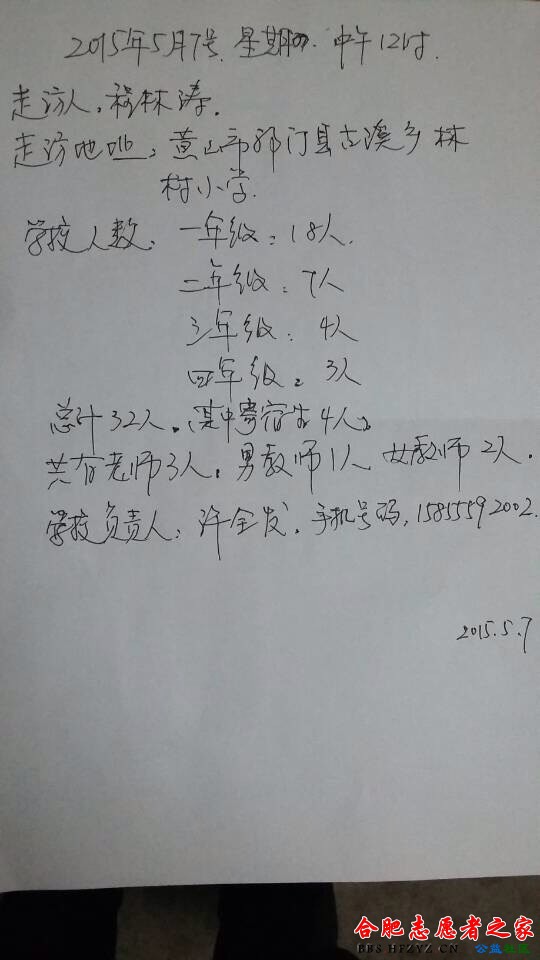 2015年5月7号.星期四.中午12时.
走访人,程林涛.
走访地址:黄山市祁门县古溪乡林
村小学.
学校人数、一年级:18人.
二年级:7人
三年级:4人
四年级:3人
总计32人。其中寄宿生4人。
共有老师3人,男教师1人 女教师2人.
学校负责人:许全发.手机号码,15855592002.
2015.5.7
合肥志愿者之家
BBS.HFZYZ.CN 公益社区